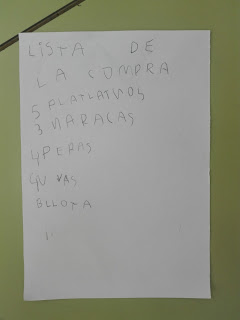 LISTA DE
LA COMPRA
5 PLATLATNOS
3 NARACAS
4 PERAS
4 UVAS
BLLOTA